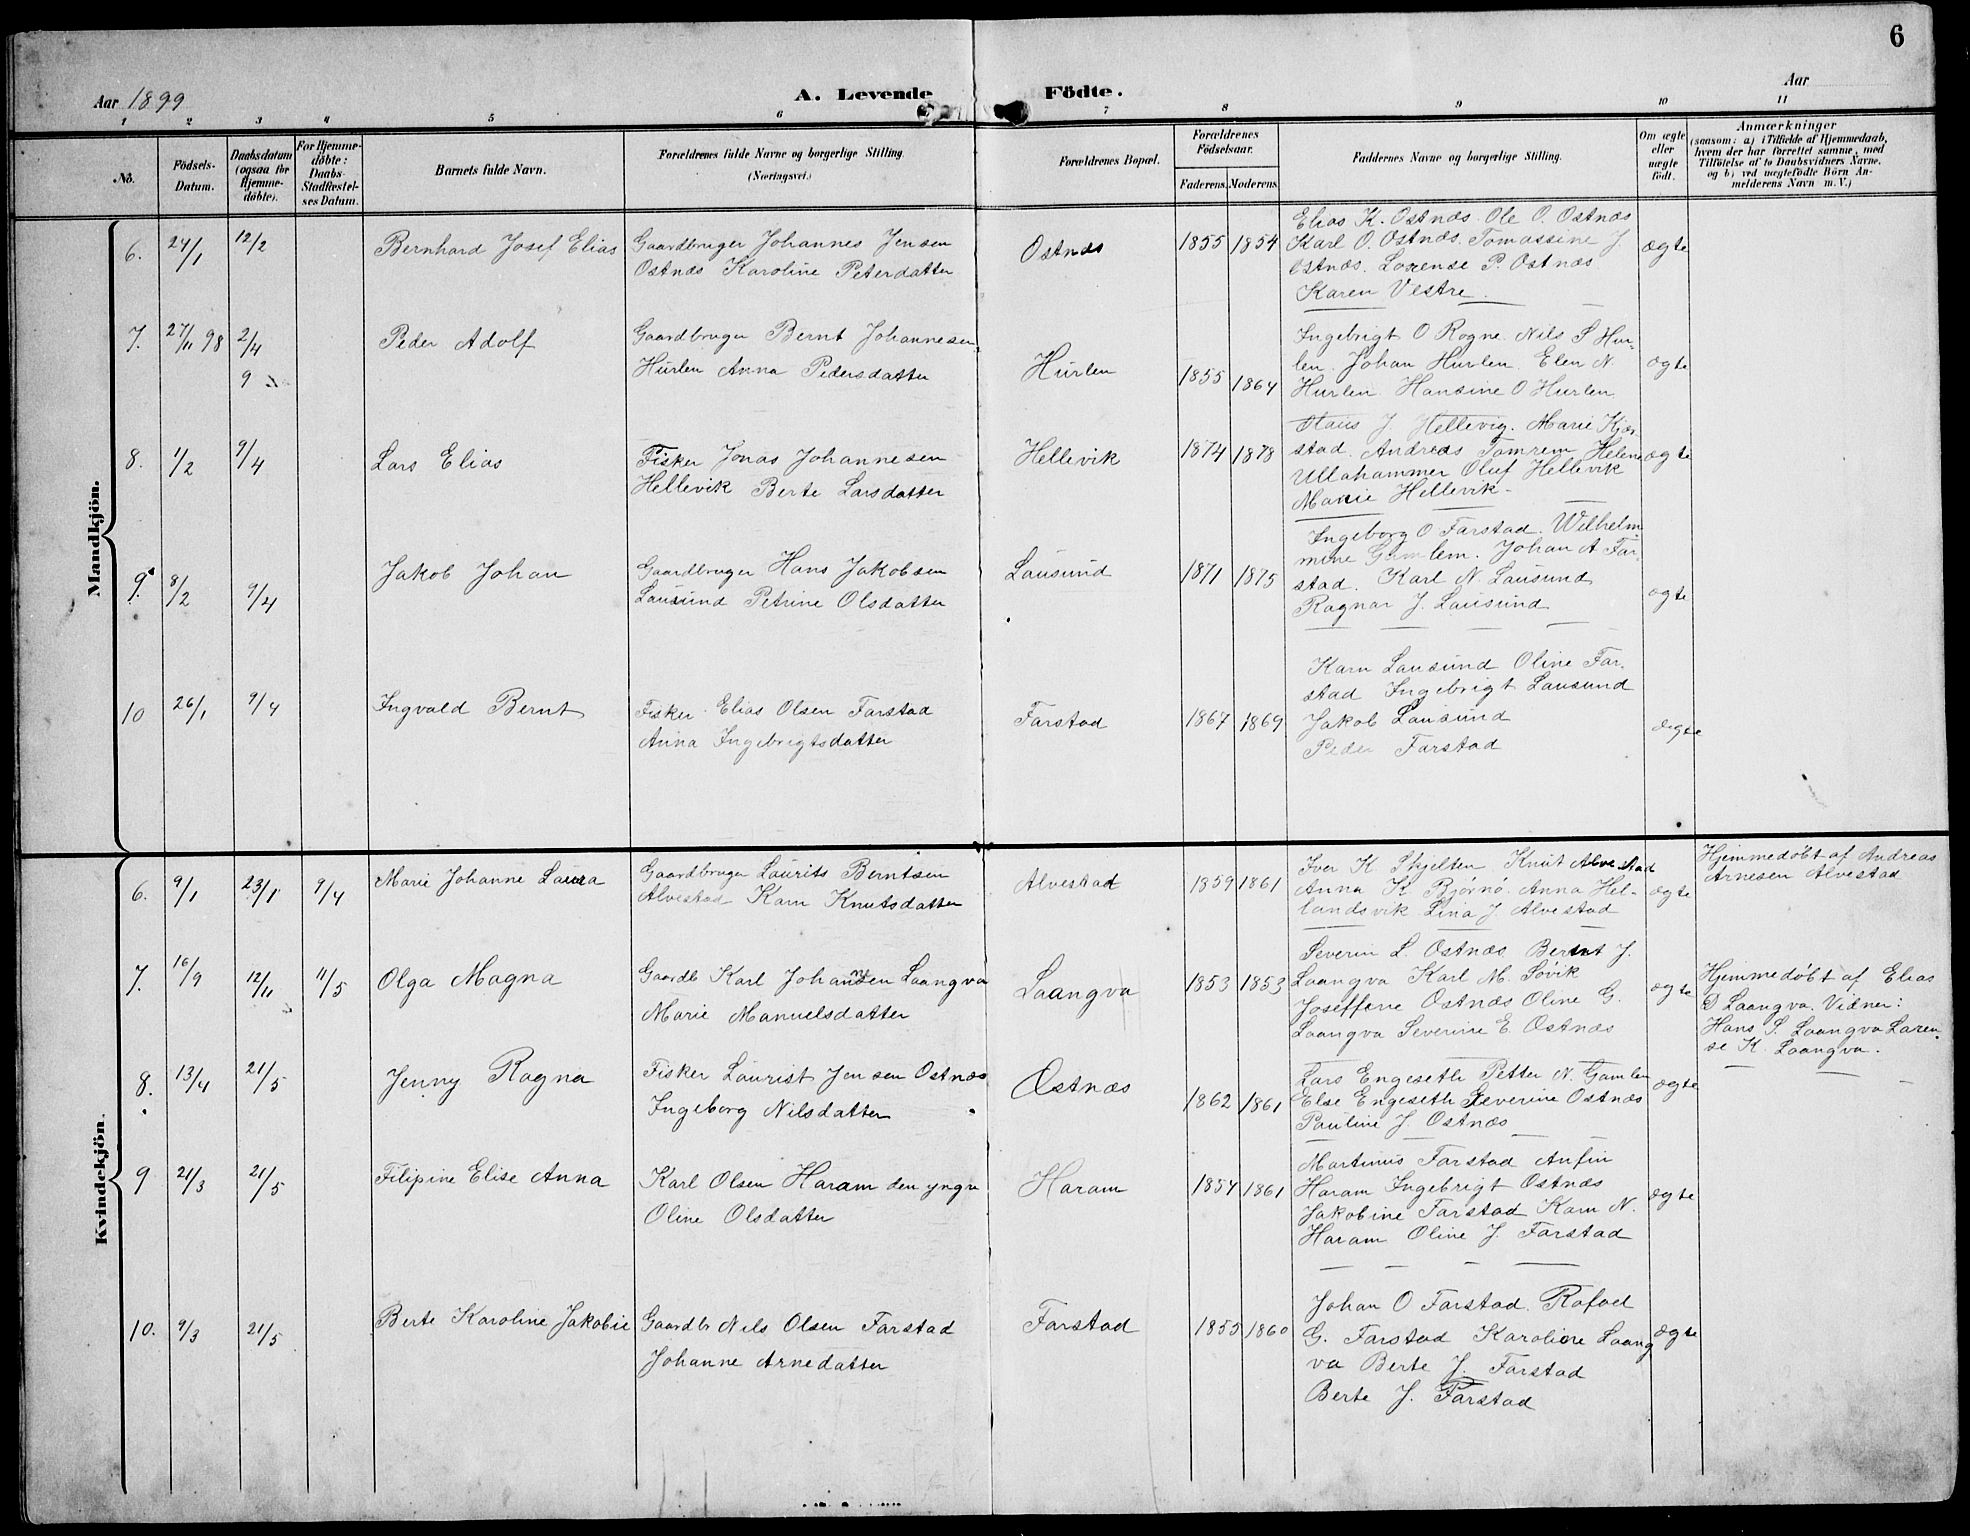 6
Aar 1899
A. Levende Födte.
Aar
1 2 3 4 5 6 7 8 9 10 11
No.
Födsels-
Datum.
Daabsdatum
(ogsaa for
Hjemme-
döbte).
For Hjemme-
döbte:
Daabs-
Stadfæstel-
ses Datum.
Barnets fulde Navn.
Forældrenes fulde Navne og borgerlige Stilling.
(Næringsvei.)
Forældrenes Bopæl.
Forældrenes
Födselsaar.
Faderens. Moderens.
Faddernes Navne og borgerlige Stilling.
Om ægte
eller
uægte
födt.
Anmærkninger
(saasom: a) i Tilfælde af Hjemmedaab,
hvem der har forrettet samme, med
Tilföielse af to Daabsvidners Navne,
og b) ved uægtefödte Börn An-
melderens Navn m. V.)
Mandkjön.
6. 24/1 12/2 Bernhard Josef Elias
Gaardbruger Johannes Jensen
Ostnæs Karoline Petersdatter
Ostnæs 1855 1854
Elias K. Ostnæs. Ole O. Ostnæs
Karl O. Ostnæs. Tomassine J
Ostnæs. Lorense P. Ostnæs
Karen Vestre.
ægte
7. 27/11 98 2/4
9
Peder Adolf
Gaardbruger Bernt Johannesen
Hurlen Anna Pedersdatter
Hurlen 1855 1864
Ingebrigt O Rogne Nils S Hur-
len. Johan Hurlen. Elen N.
Hurlen. Hansine O Hurlen
ægte
8. 1/2 9/4 Lars Elias
Fisker Jonas Johannesen
Hellevik Berte Larsdatter
Hellevik 1874 1878
J. Hellevig. Marie Kjær
stad. Andreas Tomrem Helene
Ullahammer Oluf Hellevik
Marie Hellevik-
ægte
9. 8/2 9/4 Jakob Johan
Gaardbruger Hans Jakobsen
Lausund Petrine Olsdatter
Lausund 1871 1875
Ingeborg O Farstad. Wilhelm
mine Gamlem. Johan A Far-
stad. Karl N. Lausund
Ragnar J. Lausund
ægte
10 26/1 9/4 Ingvald Bernt
Fisker Elias Olsen Farstad
Anna Ingebrigtsdatter
Farstad 1867 1869
Karn Lausund Oline Far-
stad Ingebrigt Lausund
Jakob Lausund
Peder Farstad
ægte
Kvindekjön.
6. 9/1 23/1 9/4 Marie Johanne Laura
Gaardbruger Laurits Berntsen
Alvestad Karn Knutsdatter
Alvestad 1859 1861
Iver K. Skjelten Knut Alvestad
Anna K Bjørnø. Anna Hel-
landsvik Lina J. Alvestad
ægte
Hjemmedøbt af Andreas
Arnesen Alvestad
7. 16/9 12/11 11/5 Olga Magna
Gaardb Karl Johansen Laangva
Marie Manuelsdatter
Laangva 1853 1853
Severin L. Ostnæs Bernt J.
Laangva Karl M. Søvik
Joseffine Ostnæs Oline G.
Laangva Severine E. Ostnæs
ægte
Hjemmedøbt af Elias
D Laangva. Vidner:
Hans S. Laangva Laren-
se K. Laangva.
8. 13/4 21/5 Jenny Ragna
Fisker Laurist Jensen Ostnæs
Ingeborg Nilsdatter
Østnæs 1862 1861
Lars Engeseth Petter N. Gamlem
Else Engeseth Severine Ostnæs
Pauline J. Ostnæs
ægte
9 21/3 21/5 Filipine Elise Anna
Karl Olsen Haram den yngr
Oline Olsdatter
Haram 1854 1861
Martinus Farstad Anfin
Haram Ingebrigt Ostnæs
Jakobine Farstad Karn N.
Haram Oline J. Farstad
ægte
10. 9/3 21/5 Berte Karoline Jakobie
Gaardbr Nils Olsen Farstad
Johanne Arnedatter
Farstad 1855 1860
Johan O Farstad. Rafael
G. Farstad Karoline Laang
va Berte J. Farstad
Berte J. Farstad
ægte